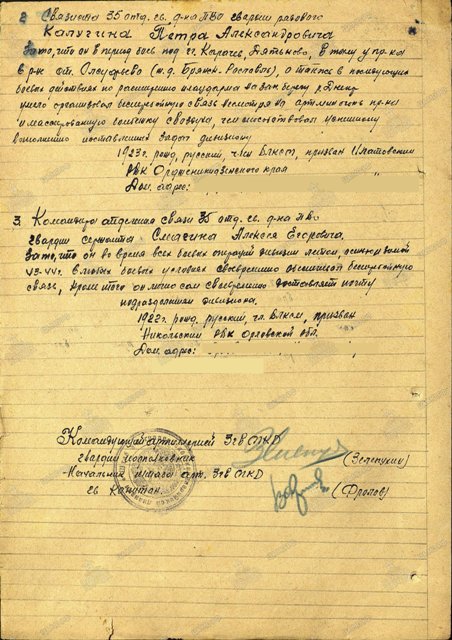 2. Связиста 35 отд. гв. д-на ПВО гвардии рядового
Калугина Петра Александровича
За то, что он в период боев под г.г. Карачев, в тылу пр-ка
в р-не ст. Олсуфьево (ж.д. Брянск-Рославль), а также в последующих
боевых действиях по расширению плацдарма на зап. берегу р. Днепр
умело организовал бесперебойную связь несмотря на арт. мин. огонь пр-ка
и массированную бомбежку с воздуха, чем способствовал успешному
выполнению поставленных задач дивизиону
1923 г. рожд., русский, чл. ВЛКСМ, призван Ипатовским
РВК Орджоникидзевского края
Дом. адрес:
3. Командира отделения связи 35 отд. гв. д-на ПВО
гвардии сержанта Смагина Алексея Егоровича.
За то, что он во время всех боевых операций дивизии летом, осенью и зимой
43-44 г. в любых боевых условиях своевременно обеспечивал бесперебойную
связь, кроме этого он лично сам своевременно доставляет почту
подразделениям дивизиона.
1922 г. рожд. русский, чл. ВЛКСМ, призван
Никольским РВК Орловской обл.
Дом. адрес:
Командующий артиллерией 3 гв МКД
гвардии подполковник
(Зеленухин)
Начальник штаба арт. 3 гв МКД
гв капитан.
(Фролов)